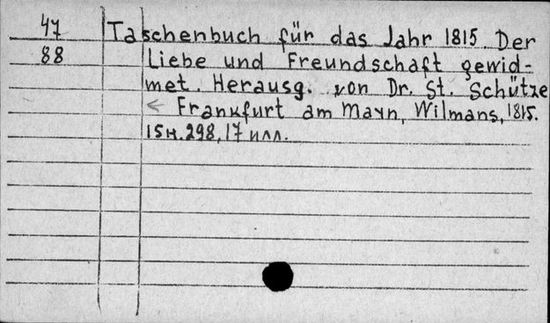 47 Taschenbuch für das Jahr 1815 Der
88 Liebe und Freundschaft gewid-
met. Herausg. von Dr. St. Schütze
< Frankfurt am Mayn, Wilmans, 1815.
15н. 298, 17 илл.